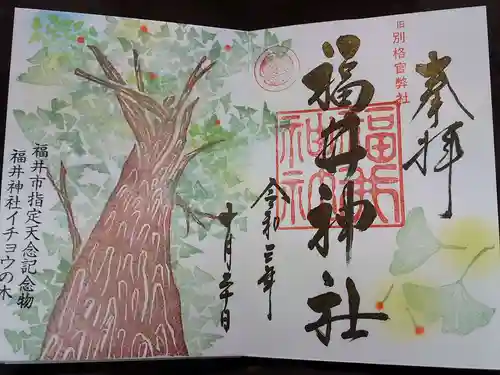 奉拝
旧別格官弊社
福井神社
令和三年
十月三十日
福井市指定天念記念物
福井神社イチョウの木